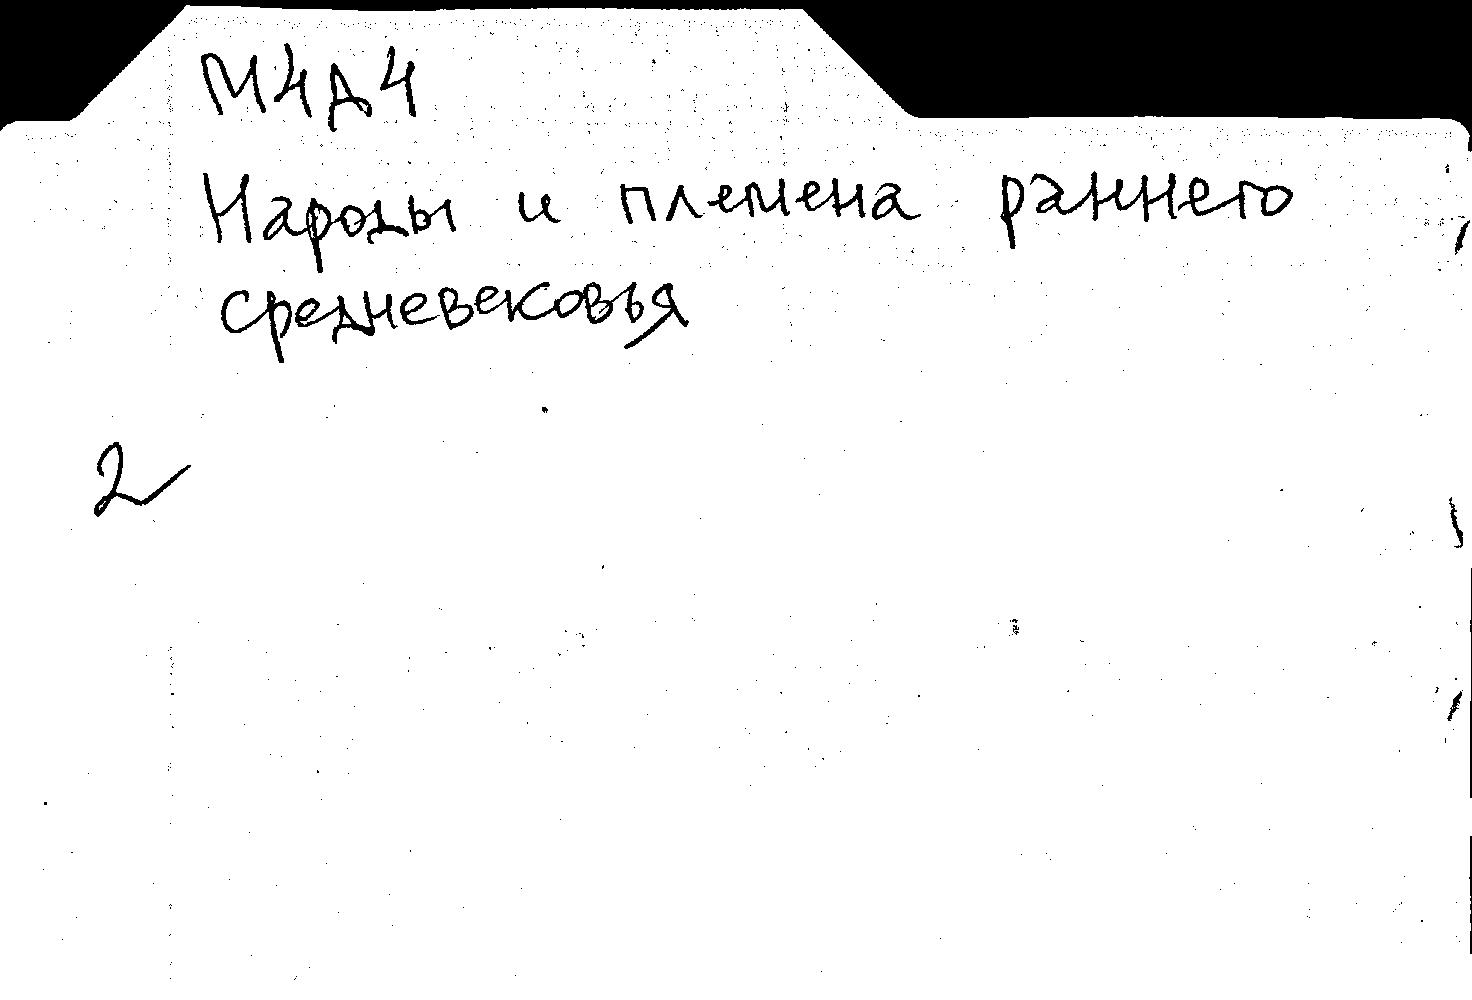 М4Д4
Народы и племена раннего
средневековья
2